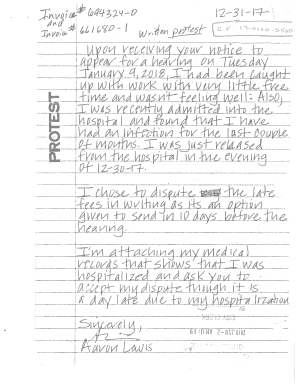 Invoice # 1684324-0
and
Invoice # 661680-1
12-31-17
written protest
PROTEST
Upon receiving your notice to
appear for a hearing on Tuesday
January 9, 2018, I had been caught
up with work with very little free
time and wasnt feeling well. Also,
I was recently admitted into the
hospital and found that I have
had an infection for the last couple
of months. I was just released
from the hospital in the evening
of 12-30-17.
I chose to dispute the late
fees in writing as its an option
given to send in 10 days before the
hearing.
I'm attaching my medical
records that shows that I was
hospitalized and ask you to
accept my dispute though it is
a day late due to my hospitalization
Sincerely,
Aaron Lawis